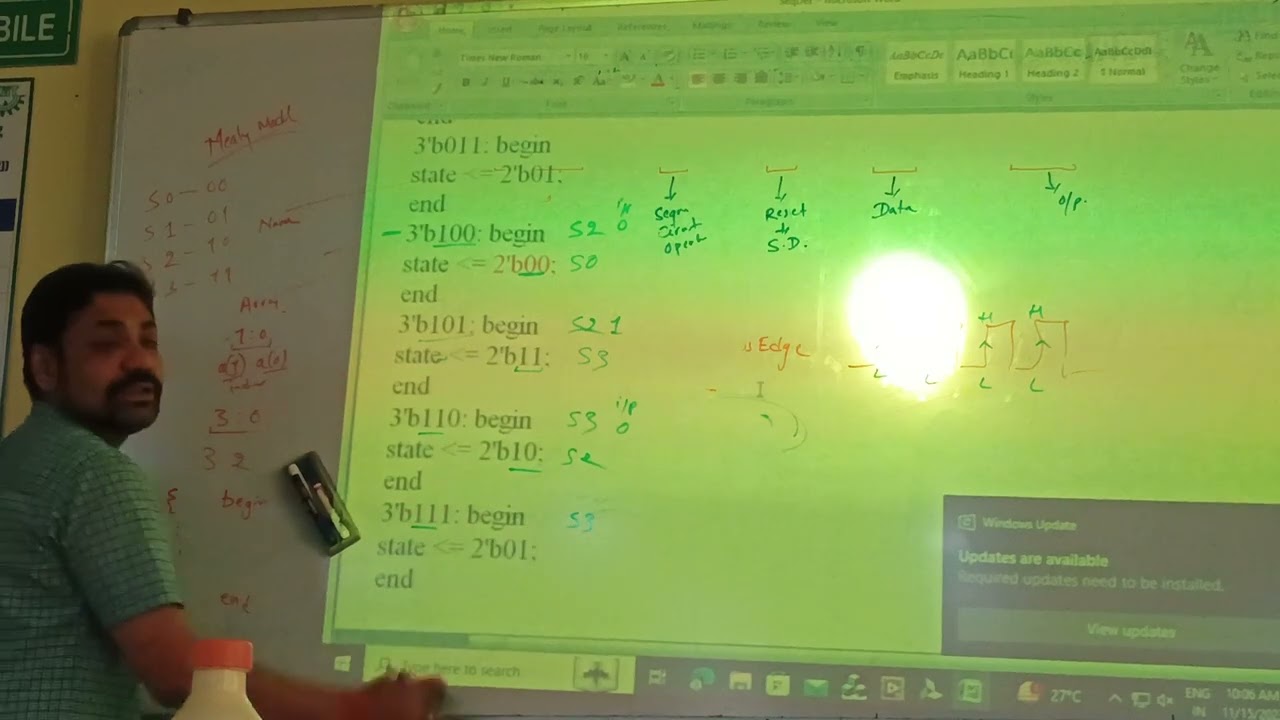 BILE
Home
Insert
Page Layout
References
Mailings
Review
View
Times New Roman
AaBbCcDc
AaBbCc
AaBbCc
AaBbCcDdI
Emphasis
Heading 1
Heading 2
¶ Normal
Change
Styles
Font
Paragraph
Styles
end
3'b011: begin
state <= 2'b01;
end
3'b100: begin S2 i/p 0
state <= 2'b00; S0
end
3'b101: begin S2 1
state <= 2'b11; S3
end
3'b110: begin S3 i/p 0
state <= 2'b10; S2
end
3'b111: begin S3
state <= 2'b01;
end
Mealy
S0 - 00
S1 - 01
S2 - 10
3 - 11
7:0
a(0)
3:0
3 2
{ begin
end
Reset
S.D.
Data
O/p.
Edge
H H
L L L L
Windows Update
Updates are available
Required updates need to be installed.
View updates
Type here to search
27°C
ENG
IN
10:06 AM